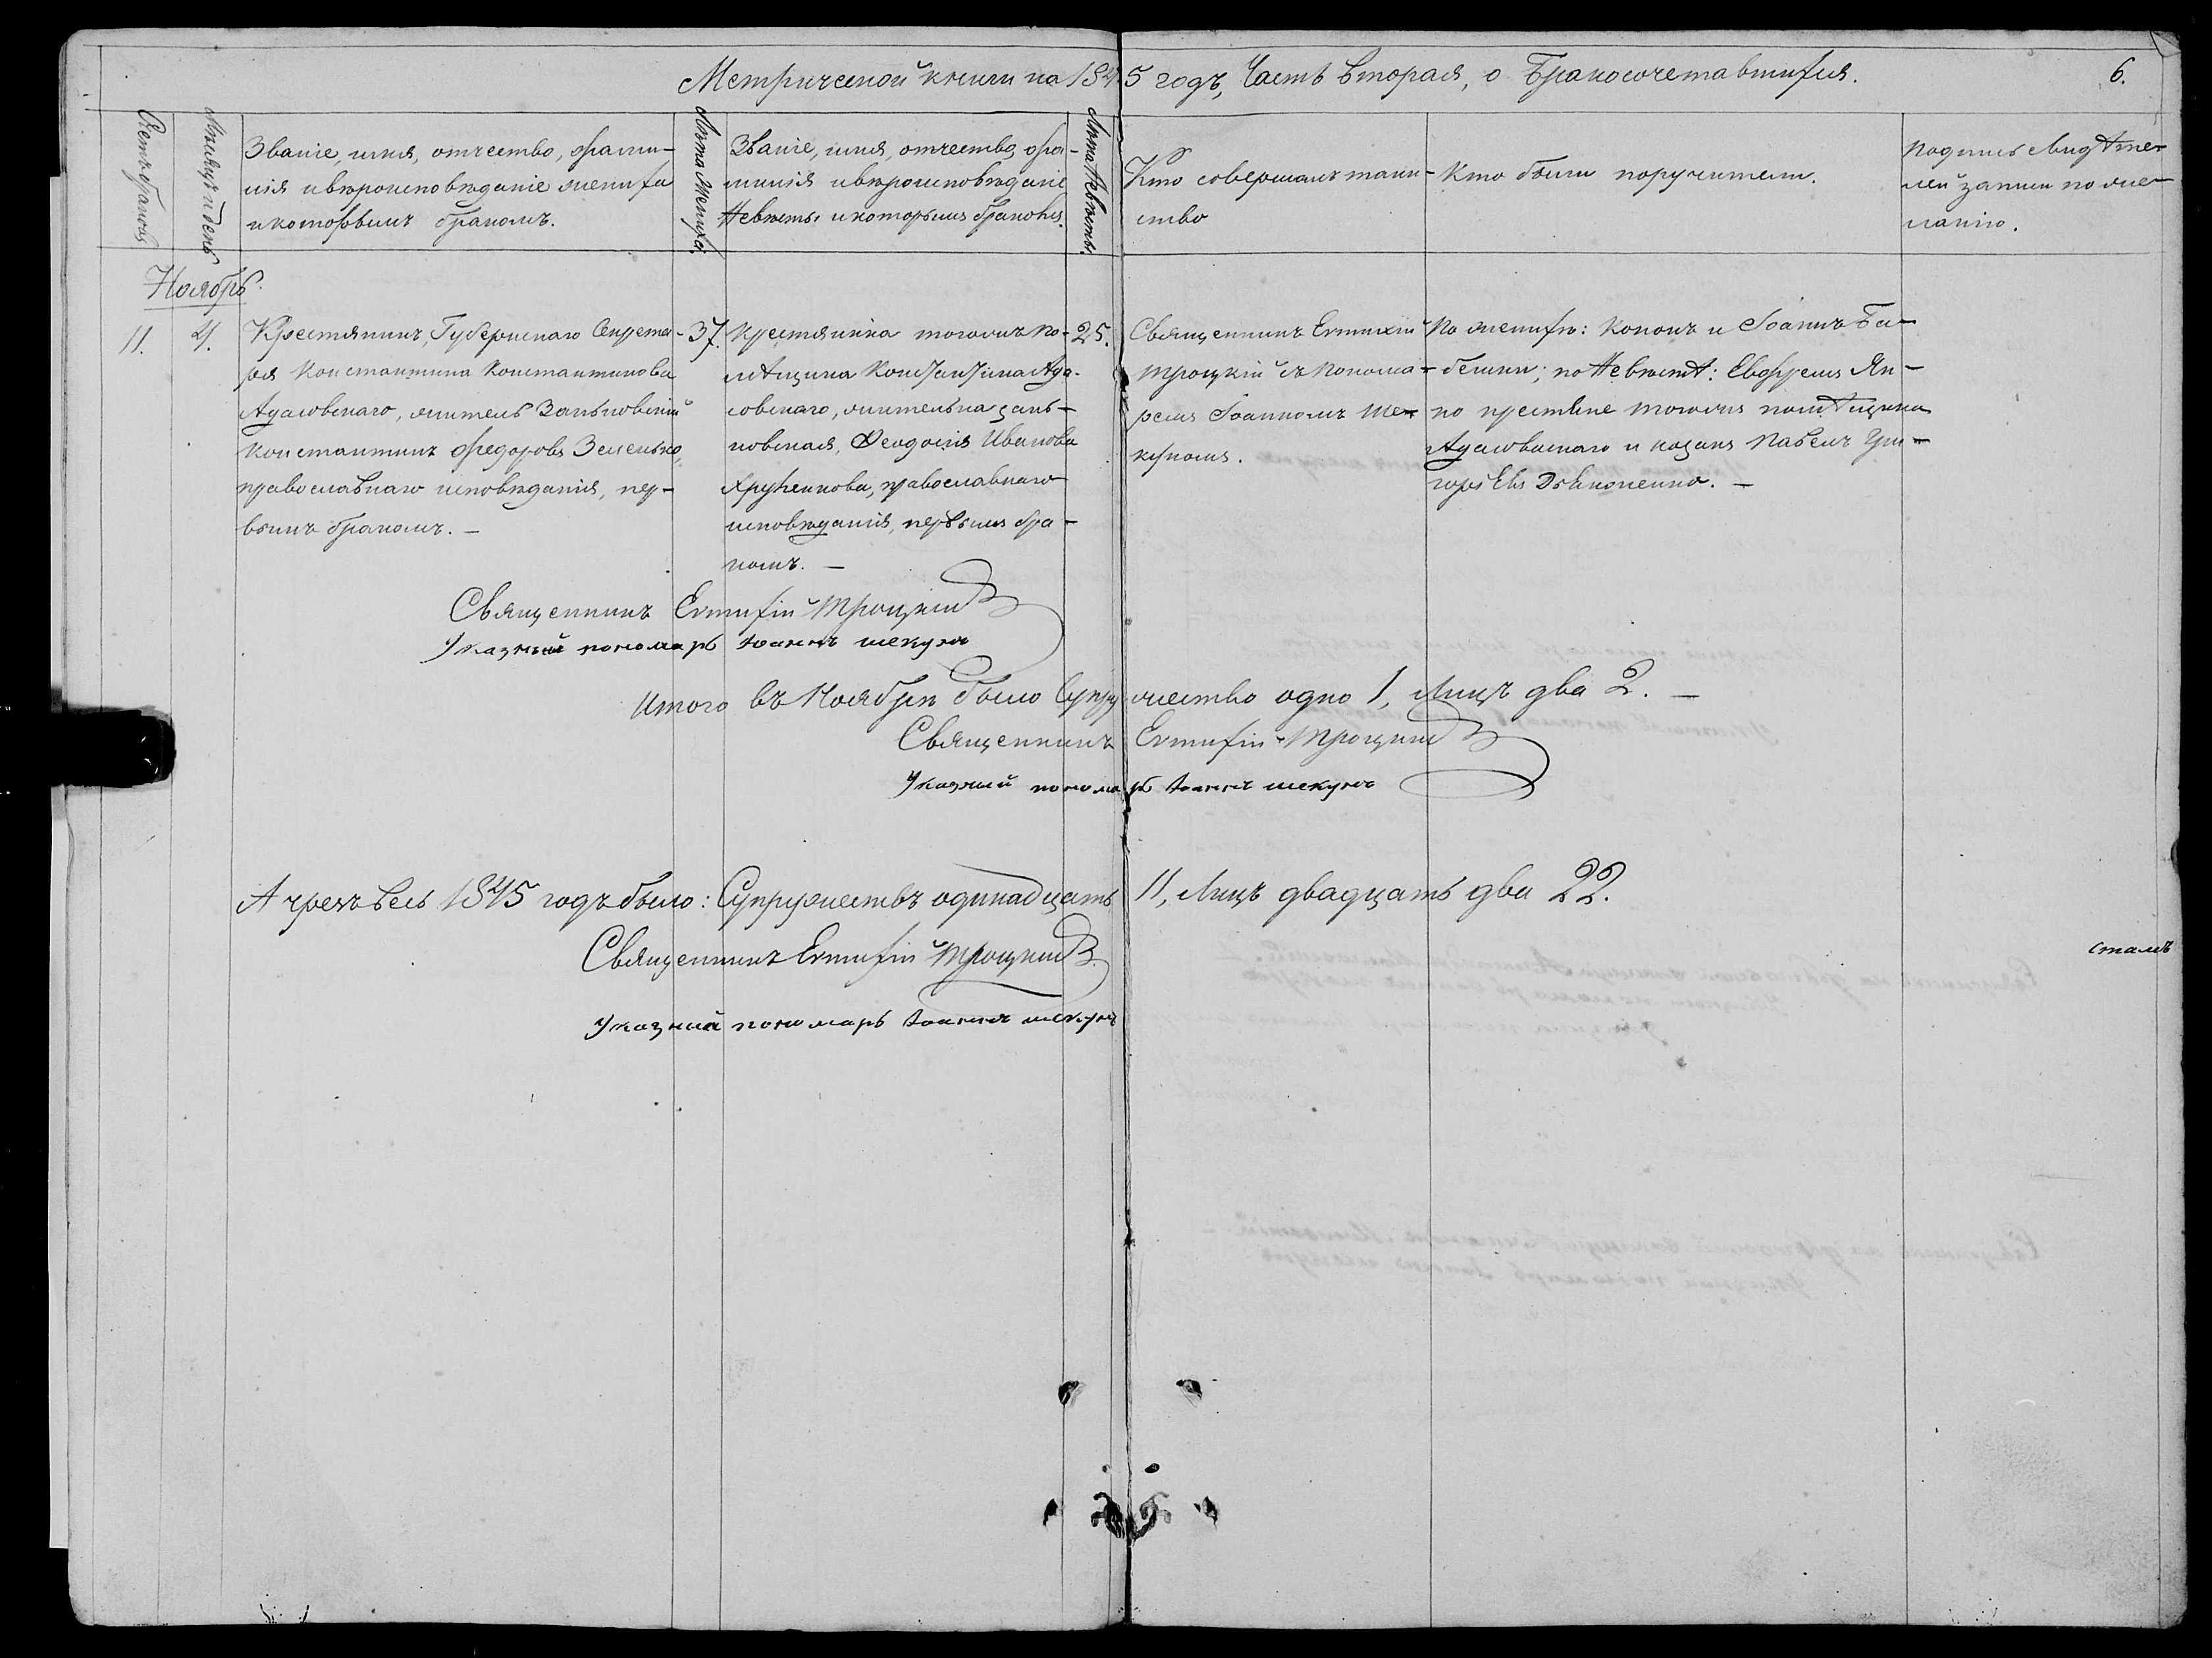 Метрической книги на 1845 годъ, Часть вторая, о Бракосочетавшихся.
6.
Счетъ браковъ
Мѣсяцъ и день
Званіе, имя, отчество, фами-
лія и вѣроисповѣданіе жениха
и которымъ бракомъ.
Лѣта Жениха.
Званіе, имя, отчество, фа-
милія и вѣроисповѣданіе
Невѣсты и которымъ бракомъ.
Лѣта Невѣсты.
Кто совершалъ таин-
ство
Кто были поручители.
Подпись свидѣте-
лей записи по же-
ланію.
Ноябрь.
11.
4.
Крестянинъ, Губернскаго Секрета-
ря Константина Константинова
Адасовскаго, житель
Константинъ Федоровъ Зеленько,
православнаго исповѣданія, пер-
вымъ бракомъ. —
37.
Крестянка тогожъ по-
мѣщика Константина Ада-
совскаго, жителька зань-
ковская, Феодосія Иванова
православнаго
исповѣданія, первымъ бра-
комъ. —
25.
Священникъ Евтихій
Троцкій съ Понома-
ремъ Іоанномъ Ше-
куномъ.
По женихѣ: Кононъ и Іоаннъ Ба-
бешки; по Невѣстѣ: Евфремъ Яч-
но крестяне тогожъ помѣщика
Адасовскаго и козакъ Павелъ Гри-
горьевъ Дяконенко. —
Священникъ Евтихій Троцкій
Указный пономарь Іоаннъ шекунъ
Итого въ Ноябрѣ было Супружество одно 1, Лицъ два 2. —
Священникъ Евтихій Троцкій
Указный пономарь Іоаннъ шекунъ
А чрезъ весь 1845 годъ было: Супружествъ одинадцать 11, Лицъ двадцать два 22.
Священникъ Евтихій Троцкій
сталъ
Указный пономарь Іоаннъ шекунъ